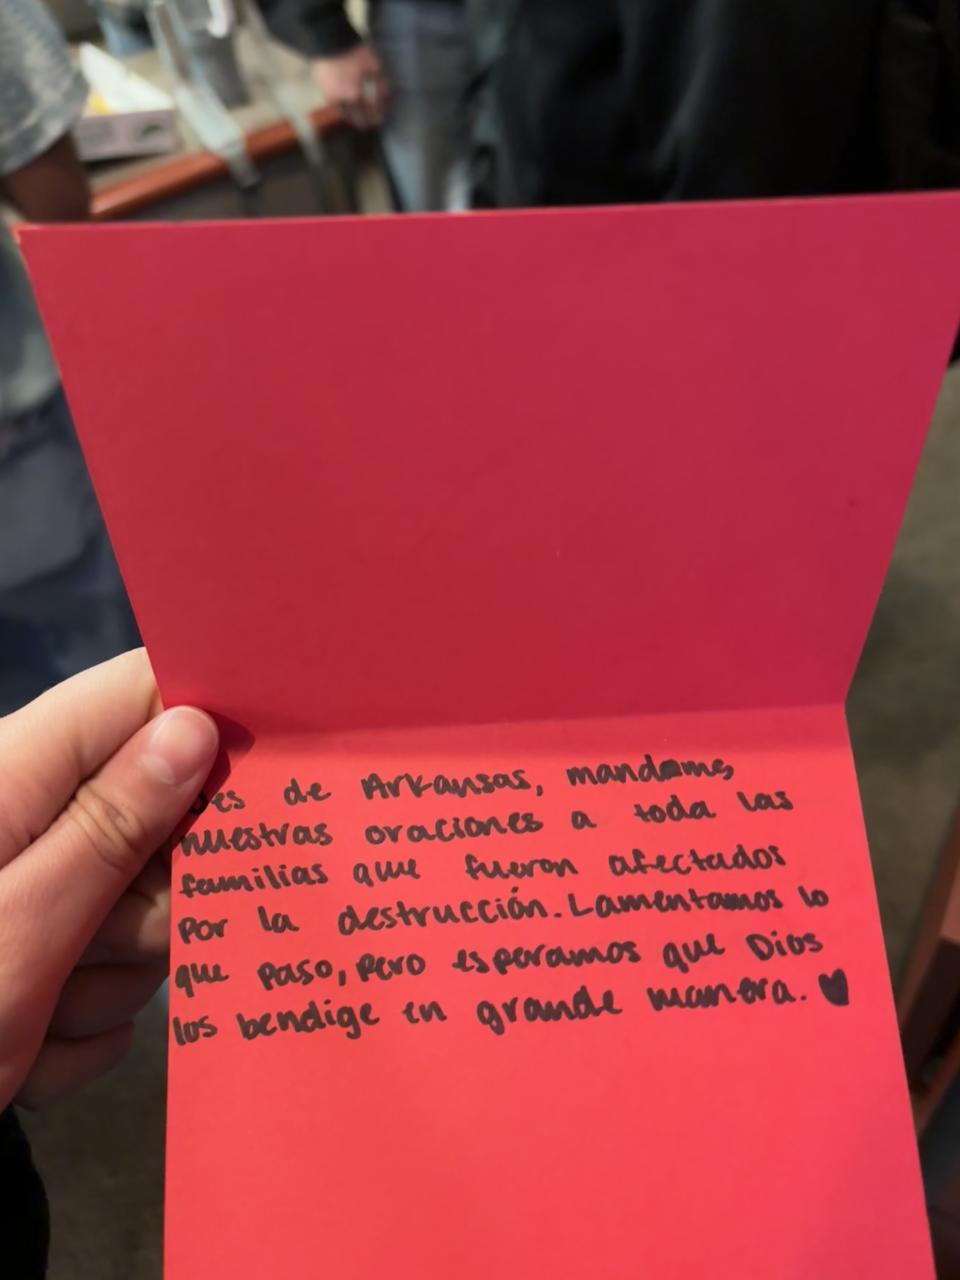 Des de Arkansas, mandamos
nuestras oraciones a toda las
familias que fueron afectados
por la destrucción. Lamentamos lo
que paso, pero esperamos que Dios
los bendige en grande manera. ♥